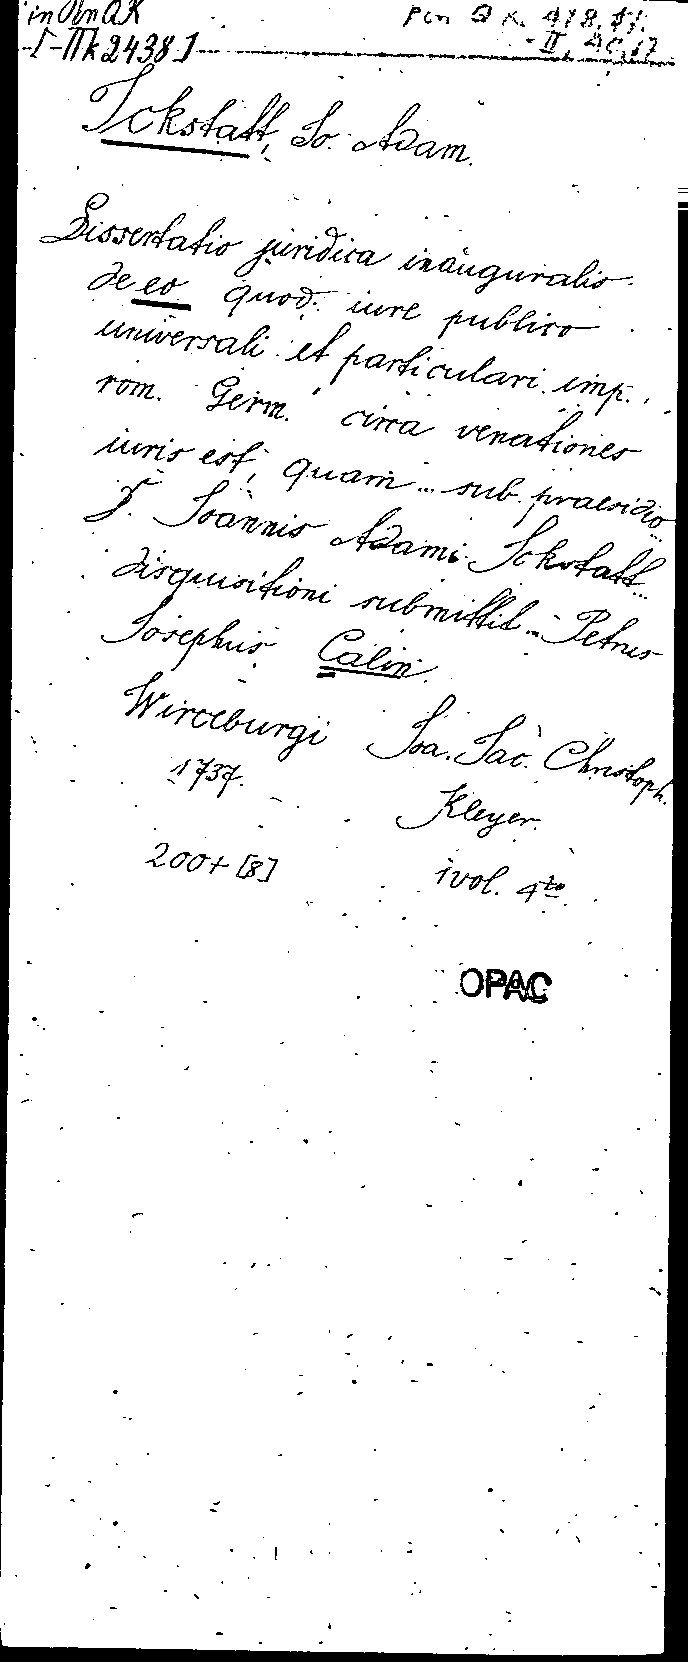 I-IIk 2438]
Ickstatt, Io. Adam.
Dissertatio juridica inauguralis
de eo quod iure publico
universali et particulari imp.
rom. Germ. circa venationes
iuris est, quam ... sub praesidio
D. Ioannis Adami Ickstatt ...
disquisitioni submittit ... Petrus
Iosephus Calin.
Wirceburgi Ioa. Iac. Christoph.
1737. Kleyer.
200+[8] 1 vol. 4to.
OPAC